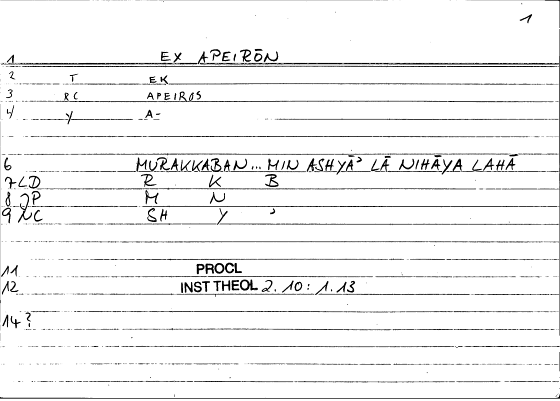 1
1 EX APEIRŌN
2 T EK
3 RC APEIROS
4 Y A-
6 MURAKKABAN... MIN ASHYĀʾ LĀ NIHĀYA LAHĀ
7 LD R K B
8 JP M N
9 NC SH Y ʾ
11 PROCL
12 INST THEOL 2.10: 1.13
14 ?